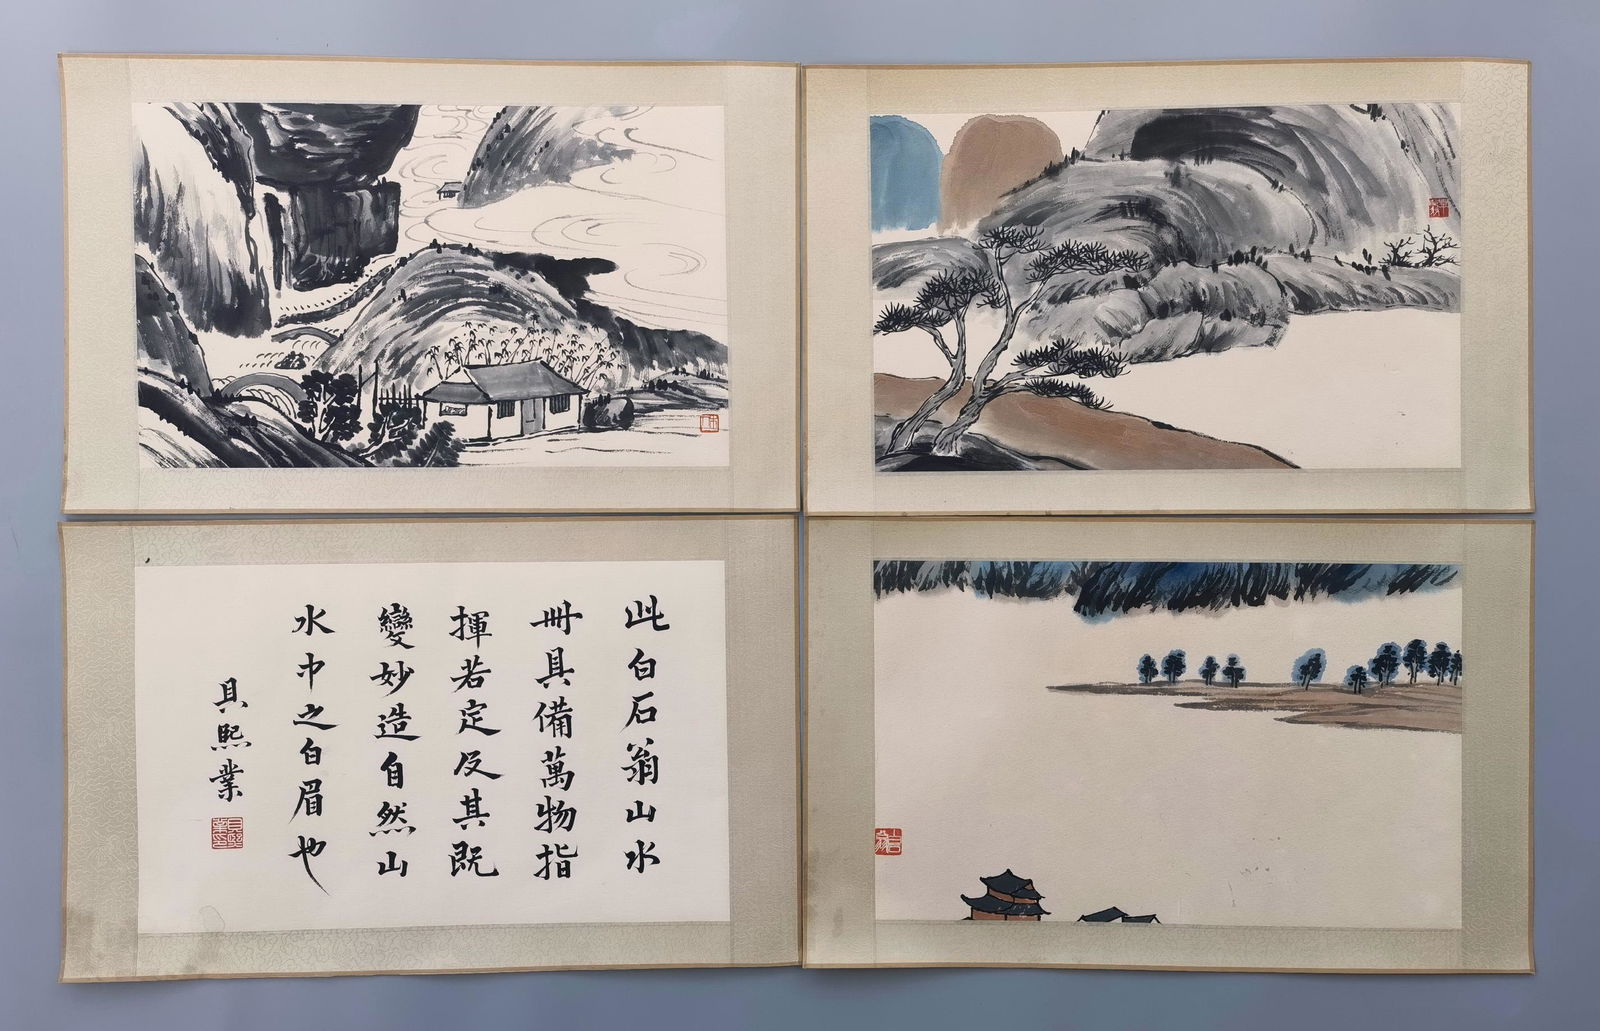 此白石翁山水
卌具備萬物指
揮若定及其既
變妙造自然山
水中之白眉也
具熙業